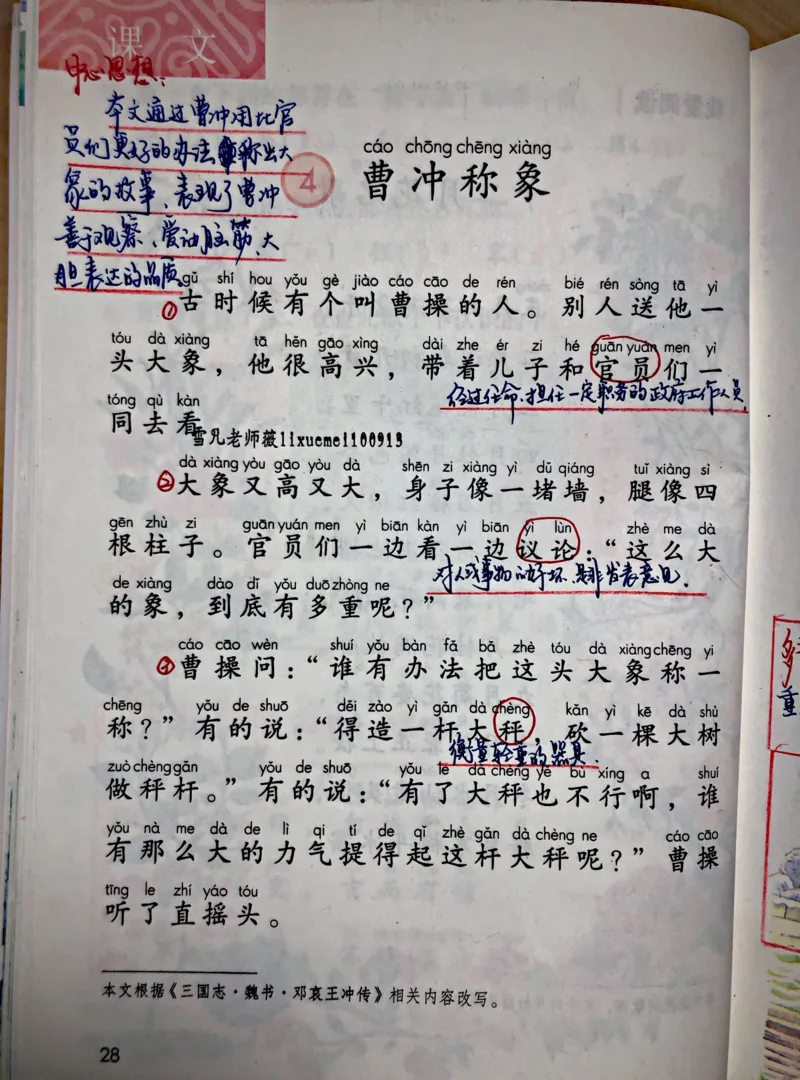 课 文
中心思想:
本文通过曹冲用比官
员们更好的办法称出大
象的故事、表现了曹冲
善于观察、爱动脑筋、大
胆表达的品质
4
cáo chōng chēng xiàng
曹冲称象
gǔ shí hou yǒu gè jiào cáo cāo de rén bié rén sòng tā yì
①古时候有个叫曹操的人。别人送他一
tóu dà xiàng tā hěn gāo xìng dài zhe ér zi hé guān yuán men yì
头大象，他很高兴，带着儿子和官员们一
经过任命、担任一定职务的政府工作人员
tóng qù kàn
同去看。
雪凡老师薇lixuemei100913
dà xiàng yòu gāo yòu dà shēn zi xiàng yì dǔ qiáng tuǐ xiàng sì
②大象又高又大，身子像一堵墙，腿像四
gēn zhù zi guān yuán men yì biān kàn yì biān yì lùn zhè me dà
根柱子。官员们一边看一边议论：“这么大
对人或事物的好坏、是非发表意见.
de xiàng dào dǐ yǒu duō zhòng ne
的象，到底有多重呢？”
cáo cāo wèn shuí yǒu bàn fǎ bǎ zhè tóu dà xiàng chēng yi
③曹操问：“谁有办法把这头大象称一
chēng yǒu de shuō děi zào yì gǎn dà chèng kǎn yì kē dà shù
称？”有的说：“得造一杆大秤，砍一棵大树
衡量轻重的器具
zuò chèng gǎn yǒu de shuō yǒu le dà chèng yě bù xíng a shuí
做秤杆。”有的说：“有了大秤也不行啊，谁
yǒu nà me dà de lì qi tí de qǐ zhè gǎn dà chèng ne cáo cāo
有那么大的力气提得起这杆大秤呢？”曹操
tīng le zhí yáo tóu
听了直摇头。
本文根据《三国志·魏书·邓哀王冲传》相关内容改写。
28
重